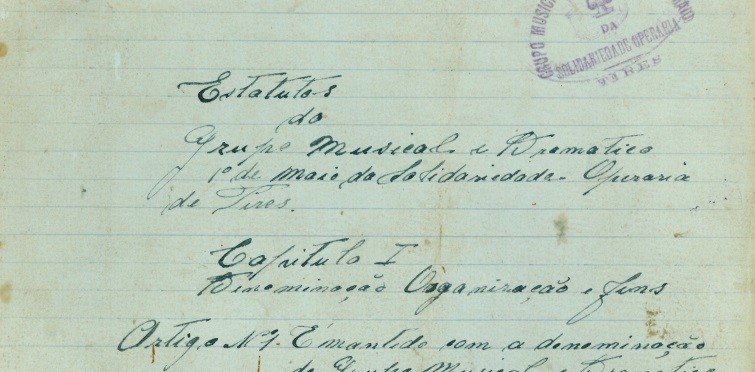 GRUPO MUSICAL
DA
SOLIDARIEDADE OPERÁRIA
Estatutos
do
Grupo Musical e Dramatico
1º de Maio da Solidariedade Operaria
de Tires.
Capitulo I
Denominação Organização e fins
Artigo Nº1. É mantido com a denominação
de Grupo Musical e Dramatico